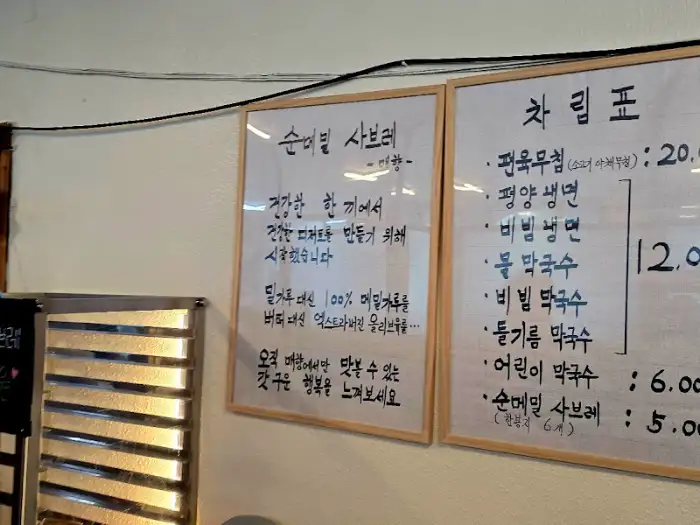 순메밀 사브레
- 매향 -
건강한 한 끼에서
건강한 디저트를 만들기 위해
시작했습니다
밀가루 대신 100% 메밀가루를
버터 대신 엑스트라버진 올리브유를...
오직 매향에서만 맛볼 수 있는
갓 구운 행복을 느껴보세요
차림표
· 편육무침 (소고기 야채무침) : 20.0
· 평양냉면
· 비빔냉면
· 물 막국수
· 비빔 막국수
· 들기름 막국수
12.0
· 어린이 막국수 : 6.00
· 순메밀 사브레 : 5.00
(한봉지 6개)
브레